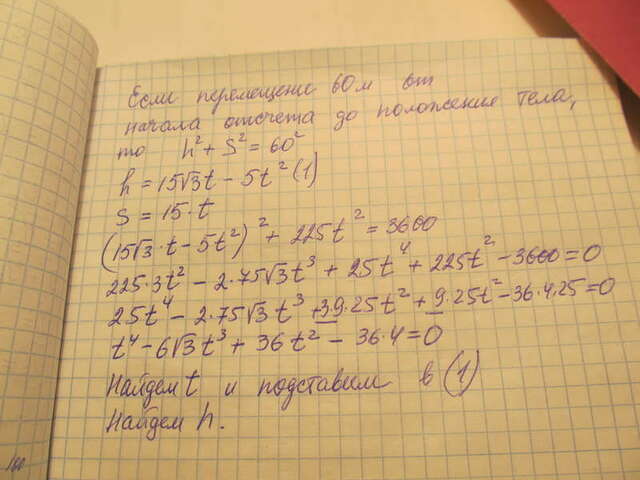 Если перемещение 60 м от
начала отсчета до положения тела,
то h² + S² = 60²
h = 15√3t - 5t² (1)
S = 15·t
(15√3·t - 5t²)² + 225t² = 3600
225·3t² - 2·75√3t³ + 25t⁴ + 225t² - 3600 = 0
25t⁴ - 2·75√3t³ + 39·25t² + 9·25t² - 36·4·25 = 0
t⁴ - 6√3t³ + 36t² - 36·4 = 0
Найдем t и подставим в (1)
Найдем h.
100